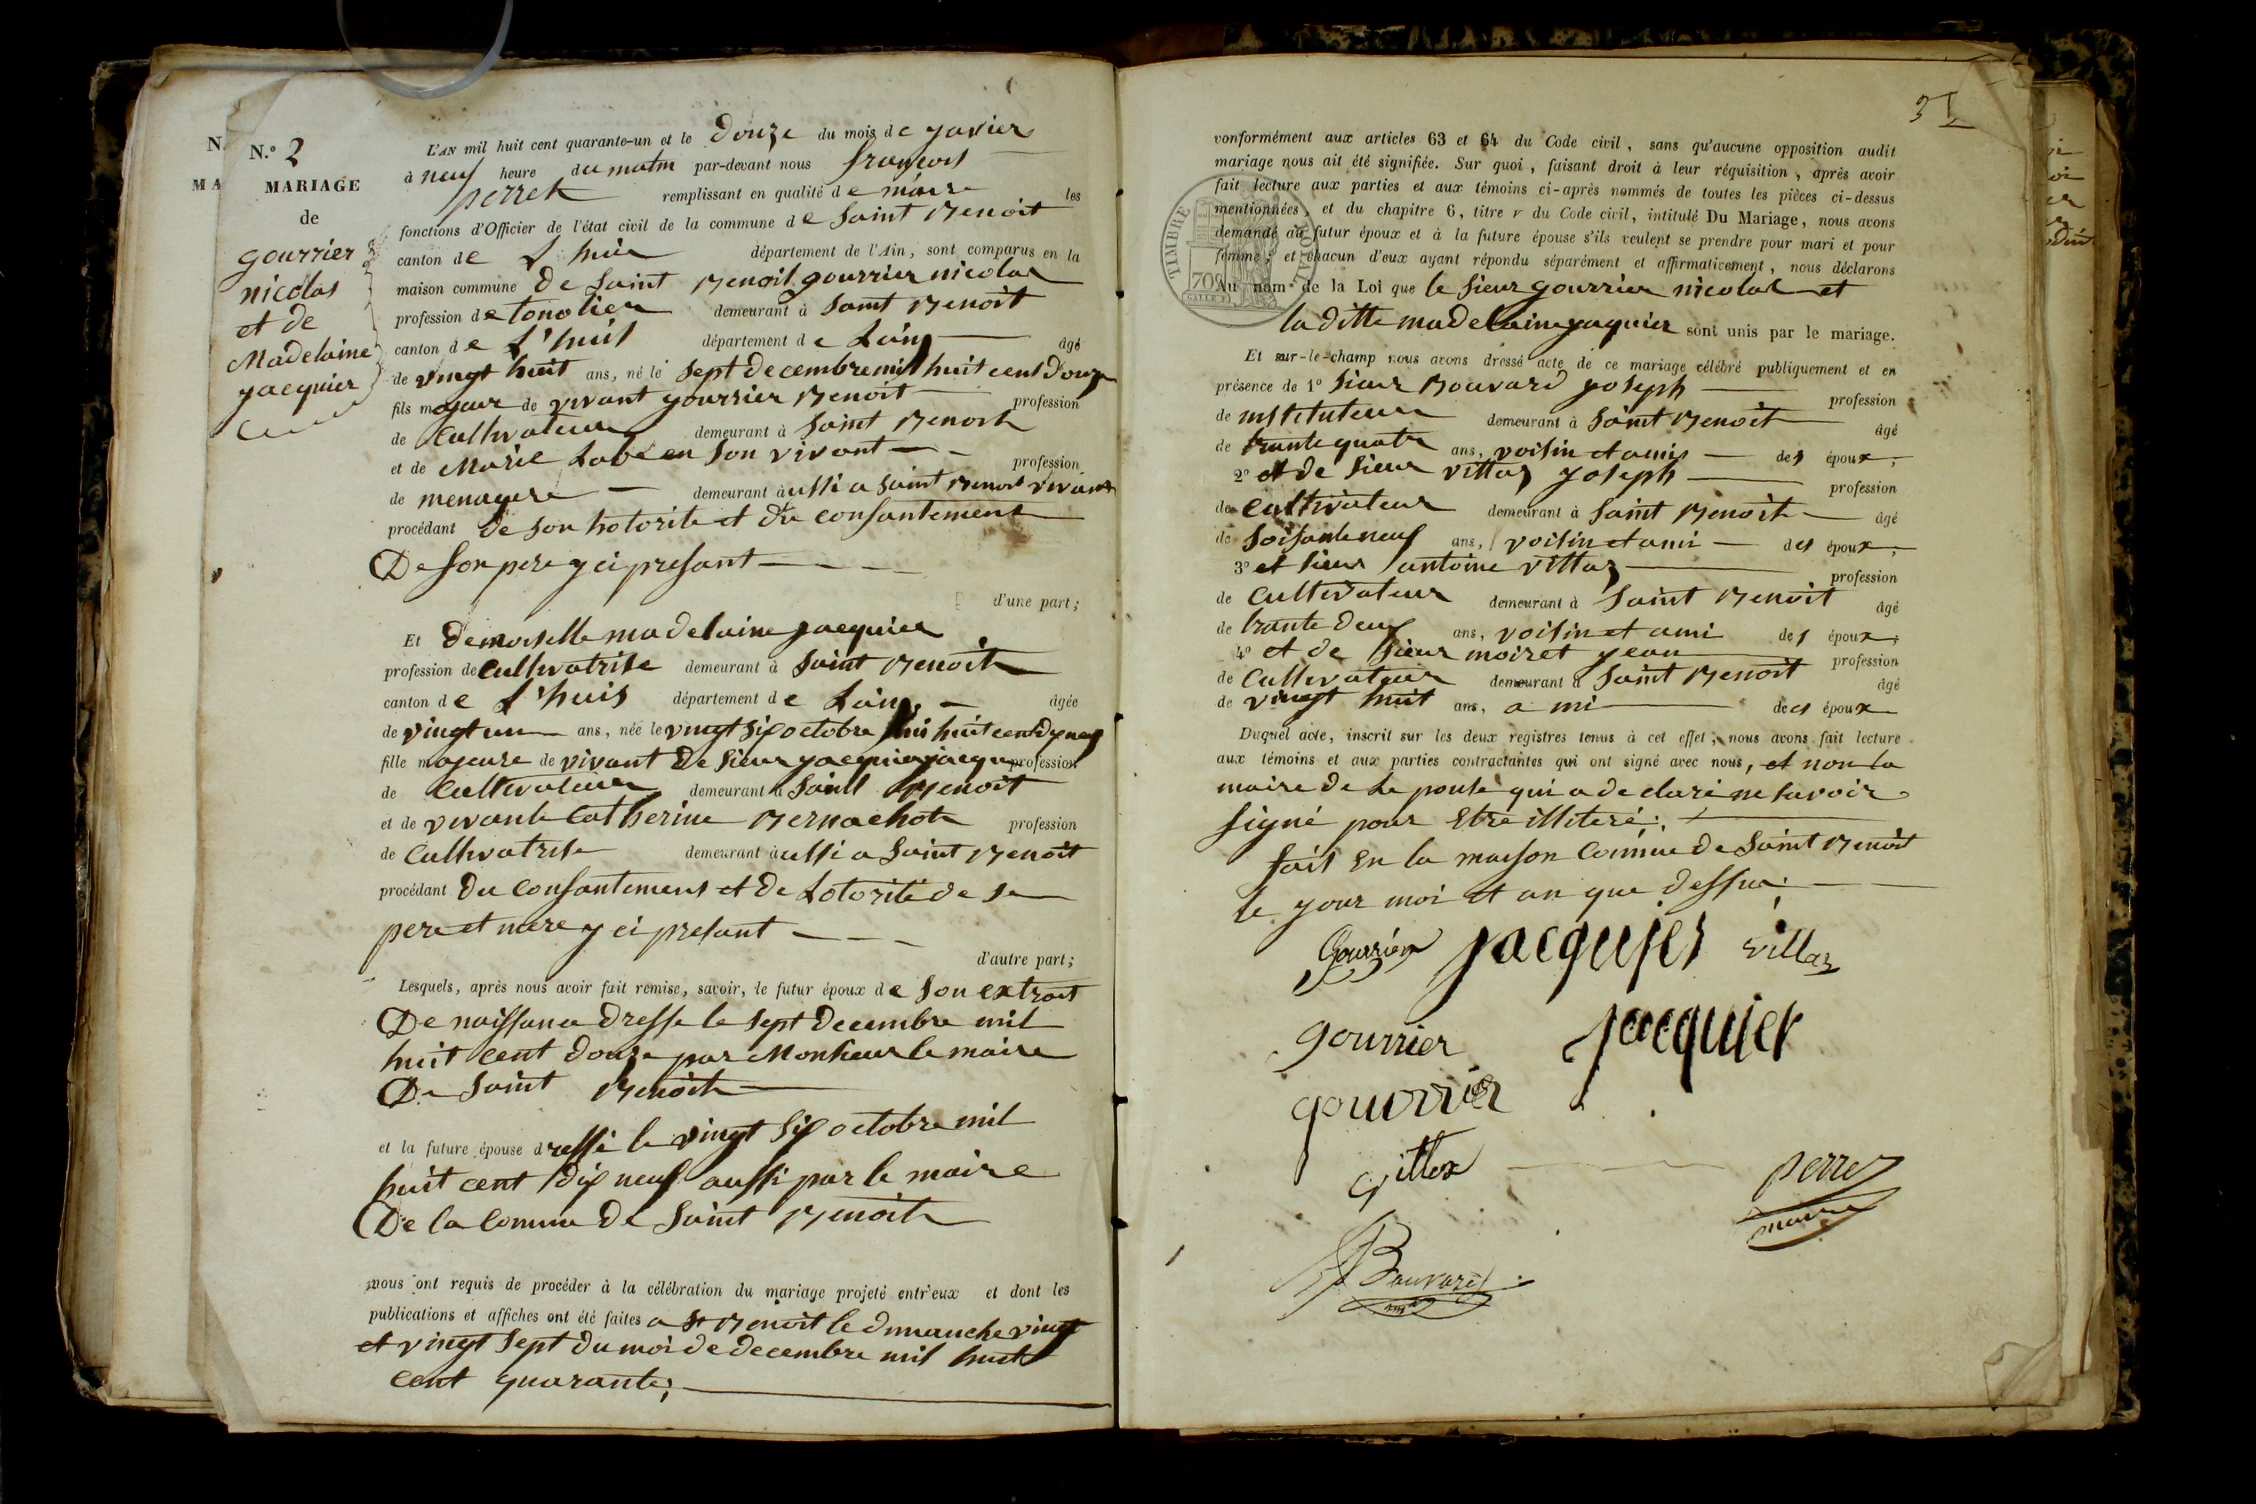 N.
M A
N.º 2
MARIAGE
de
gourrier
nicolas
et de
Madelaine
jacquier
L'AN mil huit cent quarante-un et le Douze du mois de janvier
à neuf heure du matin par-devant nous françois
perret remplissant en qualité de maire les
fonctions d'Officier de l'état civil de la commune de Saint Benoit
canton de L'huis département de l'Ain, sont comparus en la
maison commune de Saint Benoit gourrier nicolas
profession de tonolier demeurant à Saint Benoit
canton de L'huis département de Lain âgé
de vingt huit ans, né le sept decembre mil huit cent Douze
fils majeur de vivant gourrier Benoit profession
de Cultivateur demeurant à Saint Benoit
et de Marie en son vivant profession
de menagere demeurant àussi a Saint Benoit vivant
procédant De son hotorite et du consantement
De son pere y ci presant
d'une part;
Et demoiselle madelaine jacquier
profession de Cultivatrise demeurant à Saint Benoit
canton de L'huis département de Lain âgée
de vingt un ans, née le vingt six octobre mil huit cent dix neuf
fille majeure de vivant De sieur jacquier jacque profession
de Cultivateur demeurant à Saint Benoit
et de vivante Catherine Bernachot profession
de Cultivatrise demeurant àussi a Saint Benoit
procédant Du Consantement et De Lotorité de se
pere et mere y ci presant
d'autre part;
Lesquels, après nous avoir fait remise, savoir, le futur époux de son extrait
De naissance Dresse le sept Decembre mil
huit cent Douze par Monsieur le maire
De Saint Benoit
et la future épouse dressé le vingt six octobre mil
huit cent dix neuf aussi par le maire
De la Commune De Saint Benoit
nous ont requis de procéder à la célébration du mariage projeté entr'eux et dont les
publications et affiches ont été faites a St Benoit le dimanche vingt
et vingt sept du moi de decembre mil huit
cent quarante;
31
conformément aux articles 63 et 64 du Code civil, sans qu'aucune opposition audit
mariage nous ait été signifiée. Sur quoi, faisant droit à leur réquisition, après avoir
fait lecture aux parties et aux témoins ci-après nommés de toutes les pièces ci-dessus
mentionnées, et du chapitre 6, titre v du Code civil, intitulé Du Mariage, nous avons
demandé au futur époux et à la future épouse s'ils veulent se prendre pour mari et pour
femme; et chacun d'eux ayant répondu séparément et affirmativement, nous déclarons
Au nom de la Loi que le sieur gourrier nicolas et
la ditte madelaine jaquier sont unis par le mariage.
TIMBRE ROYAL
70c
Et sur-le-champ nous avons dressé acte de ce mariage célébré publiquement et en
présence de 1º sieur Bouvard joseph profession
de instituteur demeurant à Saint Benoit âgé
de trante quatre ans, voisin et ami des époux;
2º et de sieur vittoz joseph profession
de Cultivateur demeurant à Saint Benoit âgé
de soisante neuf ans, voisin et ami des époux;
3º et sieur antoine vittoz profession
de Cultivateur demeurant à Saint Benoit âgé
de trante deux ans, voisin et ami des époux;
4º et de sieur moiret jean profession
de Cultivateur demeurant à Saint Benoit âgé
de vingt huit ans, ami des époux
Duquel acte, inscrit sur les deux registres tenus à cet effet, nous avons fait lecture
aux témoins et aux parties contractantes qui ont signé avec nous, et non la
maire de Lepouse qui a declaré ne savoir
signé pour Etre illiteré.
fait En la maison Commune de Saint Benoit
le jour moi et an que dessus.
Gourrier jacquier villaz
gourrier jacquier
gourrier
perret
maire
Bouvard